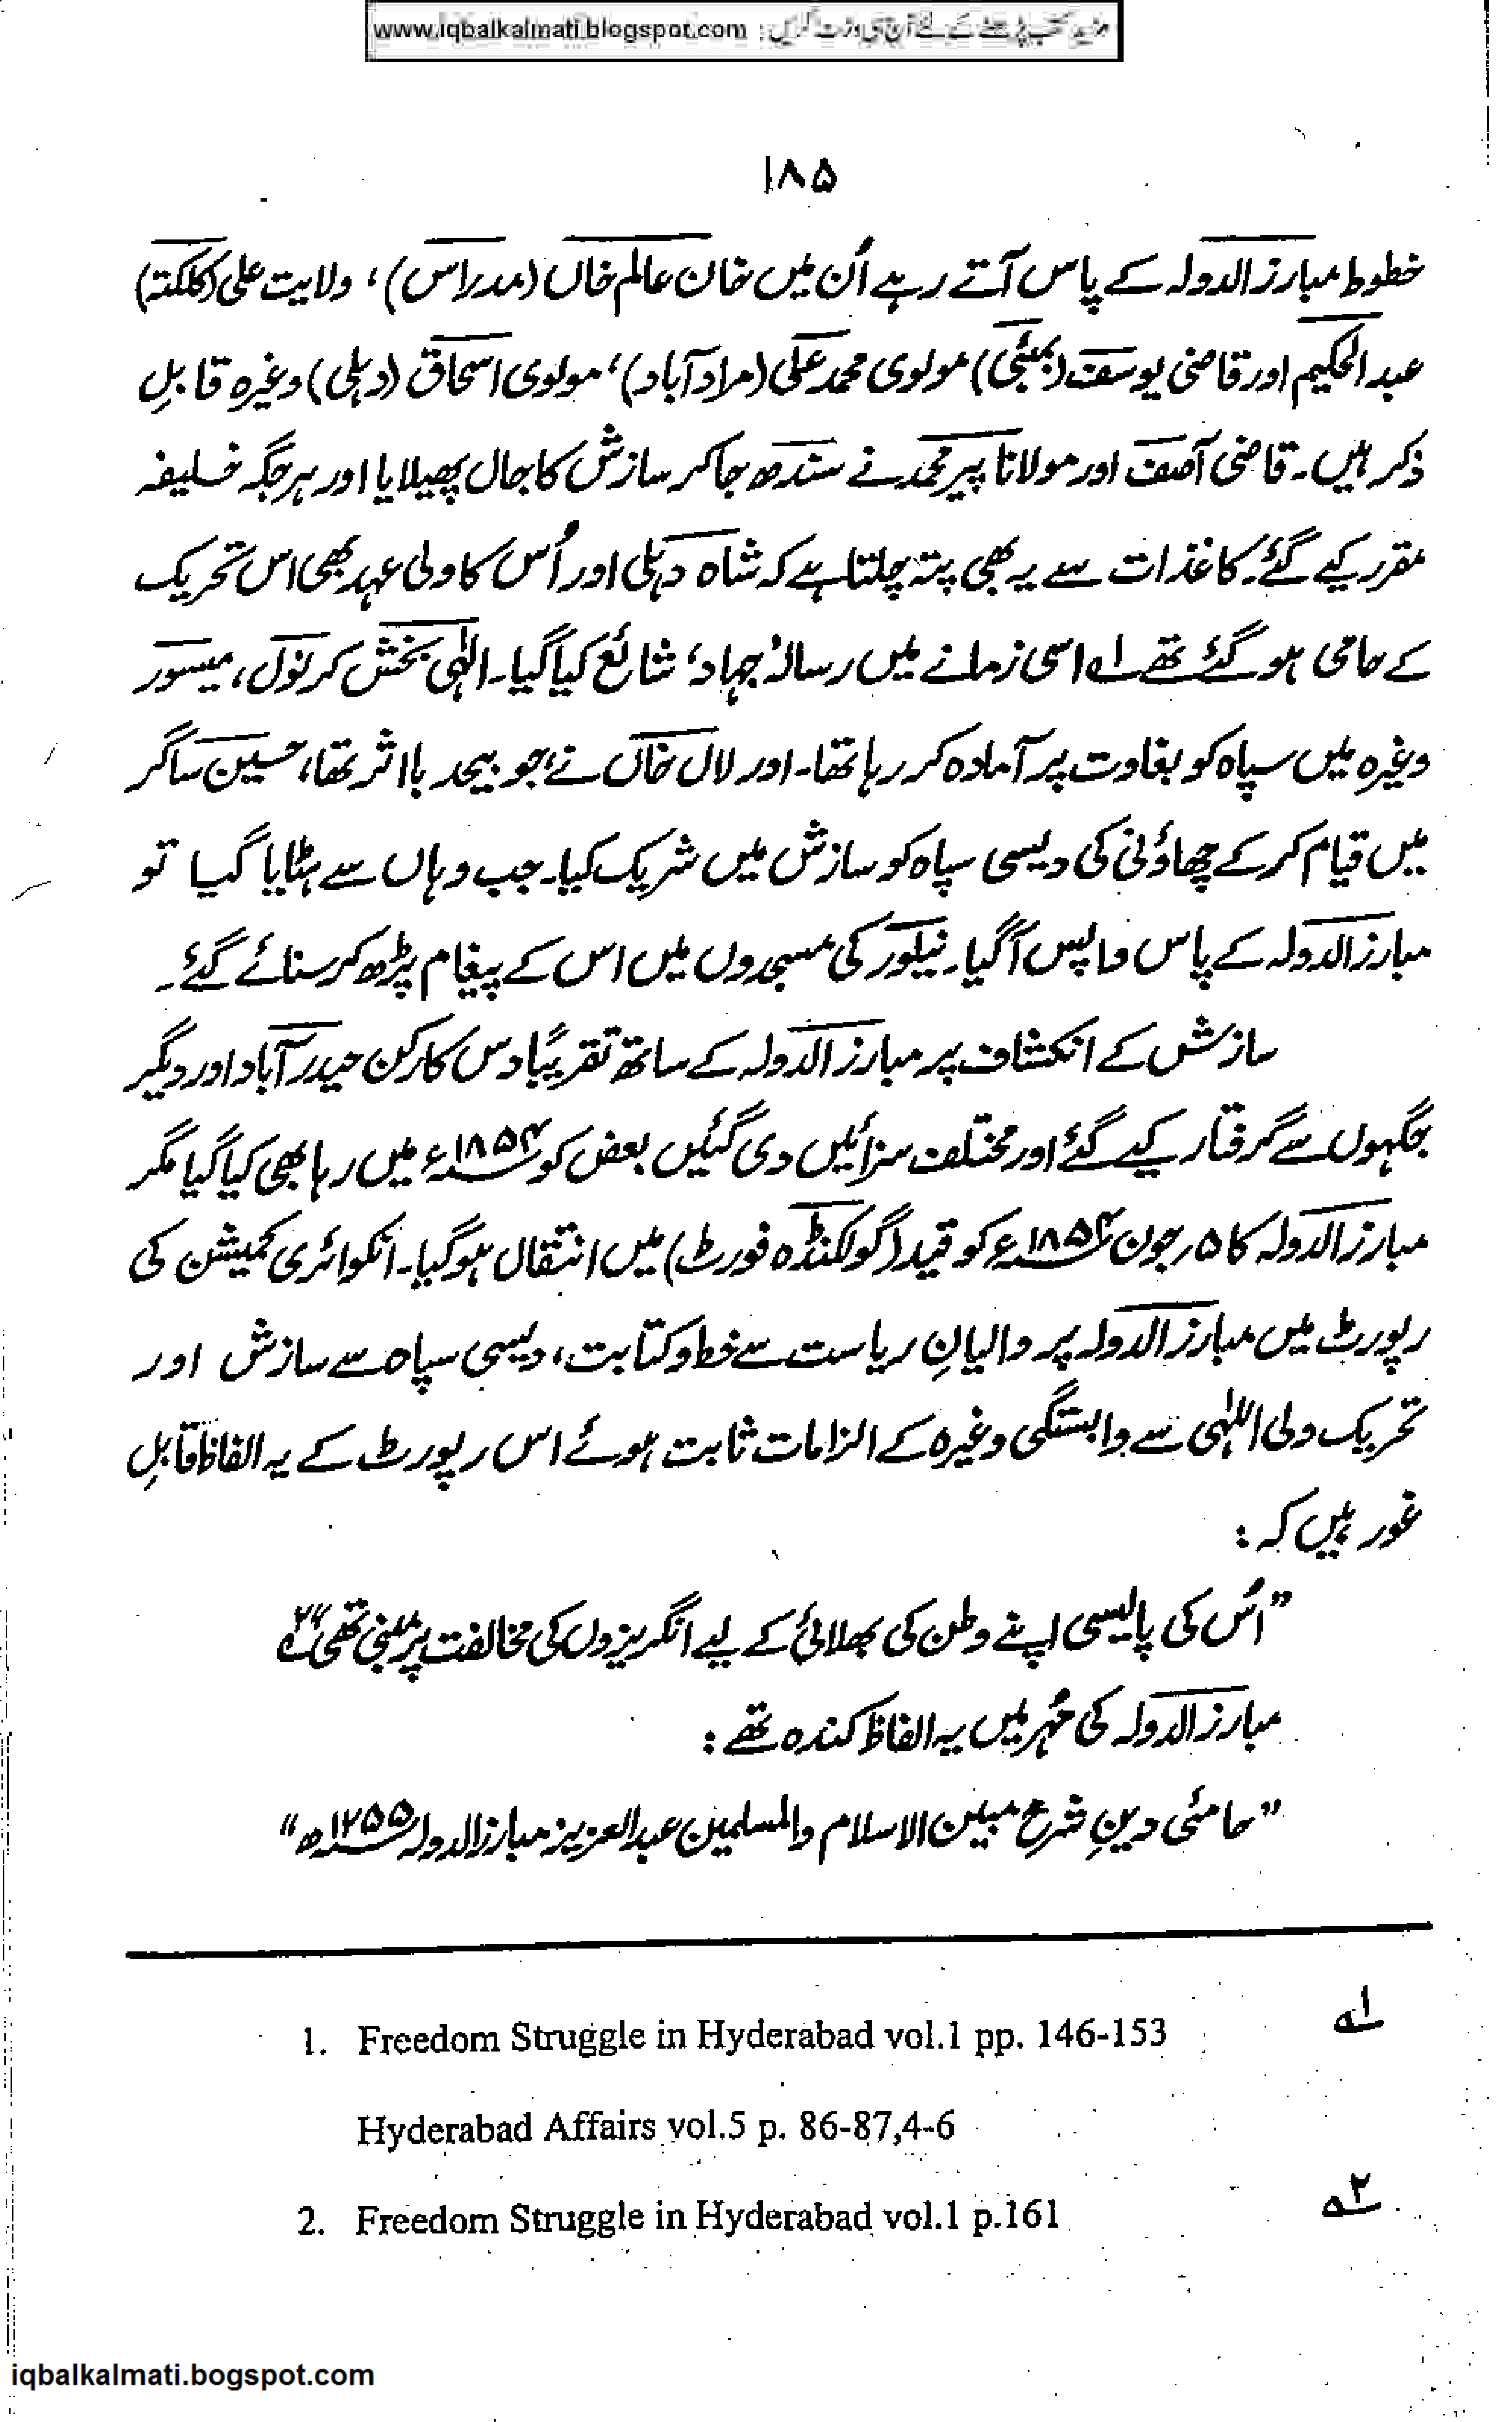 مزید کتب پڑھنے کے لئے آج ہی وزٹ کریں : www.iqbalkalmati.blogspot.com
۱۸۵
خطوط مبارز الدولہ کے پاس آتے رہے اُن میں خان عالم خاں (مدراس)، ولایت علی (کلکتہ)
عبدالحکیم اور قاضی یوسف (بمبئی) مولوی محمد علی (مراد آباد)، مولوی اسحاق (دہلی) وغیرہ قابلِ
ذکر ہیں۔ قاضی آصف اور مولانا پیر محمد نے سندھ جا کر سازش کا جال پھیلایا اور ہر جگہ خلیفہ
مقرر کیے گئے۔ کاغذات سے یہ بھی پتہ چلتا ہے کہ شاہ دہلی اور اُس کا ولی عہد بھی اس تحریک
کے حامی ہو گئے تھے ۱؎ اسی زمانے میں رسالہ ’جہاد‘ شائع کیا گیا۔ الٰہی بخش کرنول، میسور
وغیرہ میں سپاہ کو بغاوت پر آمادہ کر رہا تھا۔ اور لال خاں نے، جو بیحد بااثر تھا، حسین ساگر
میں قیام کر کے چھاؤنی کی دیسی سپاہ کو سازش میں شریک کیا۔ جب وہاں سے ہٹایا گیا تو
مبارز الدولہ کے پاس واپس آ گیا۔ نیلور کی مسجدوں میں اس کے پیغام پڑھ کر سنائے گئے۔
سازش کے انکشاف پر مبارز الدولہ کے ساتھ تقریبًا دس کارکن حیدر آباد اور دیگر
جگہوں سے گرفتار کیے گئے اور مختلف سزائیں دی گئیں بعض کو ۱۸۵۴ء میں رہا بھی کیا گیا مگر
مبارز الدولہ کا ۵ جون ۱۸۵۴ء کو قید (گولکنڈہ فورٹ) میں انتقال ہو گیا۔ انکوائری کمیشن کی
رپورٹ میں مبارز الدولہ پر والیانِ ریاست سے خط و کتابت، دیسی سپاہ سے سازش اور
تحریک ولی اللہٰی سے وابستگی وغیرہ کے الزامات ثابت ہوئے اس رپورٹ کے یہ الفاظ قابلِ
غور ہیں کہ :
”اُس کی پالیسی اپنے وطن کی بھلائی کے لیے انگریزوں کی مخالفت پر مبنی تھی“ ۲؎
مبارز الدولہ کی مُہر میں یہ الفاظ کندہ تھے :
”حامئی دینِ شرع مبین الاسلام والمسلمین عبدالعزیز مبارز الدولہ ۱۲۵۵ھ“
1. Freedom Struggle in Hyderabad vol.1 pp. 146-153 ۱؎
Hyderabad Affairs vol.5 p. 86-87,4-6
2. Freedom Struggle in Hyderabad vol.1 p.161 ۲؎
iqbalkalmati.bogspot.com